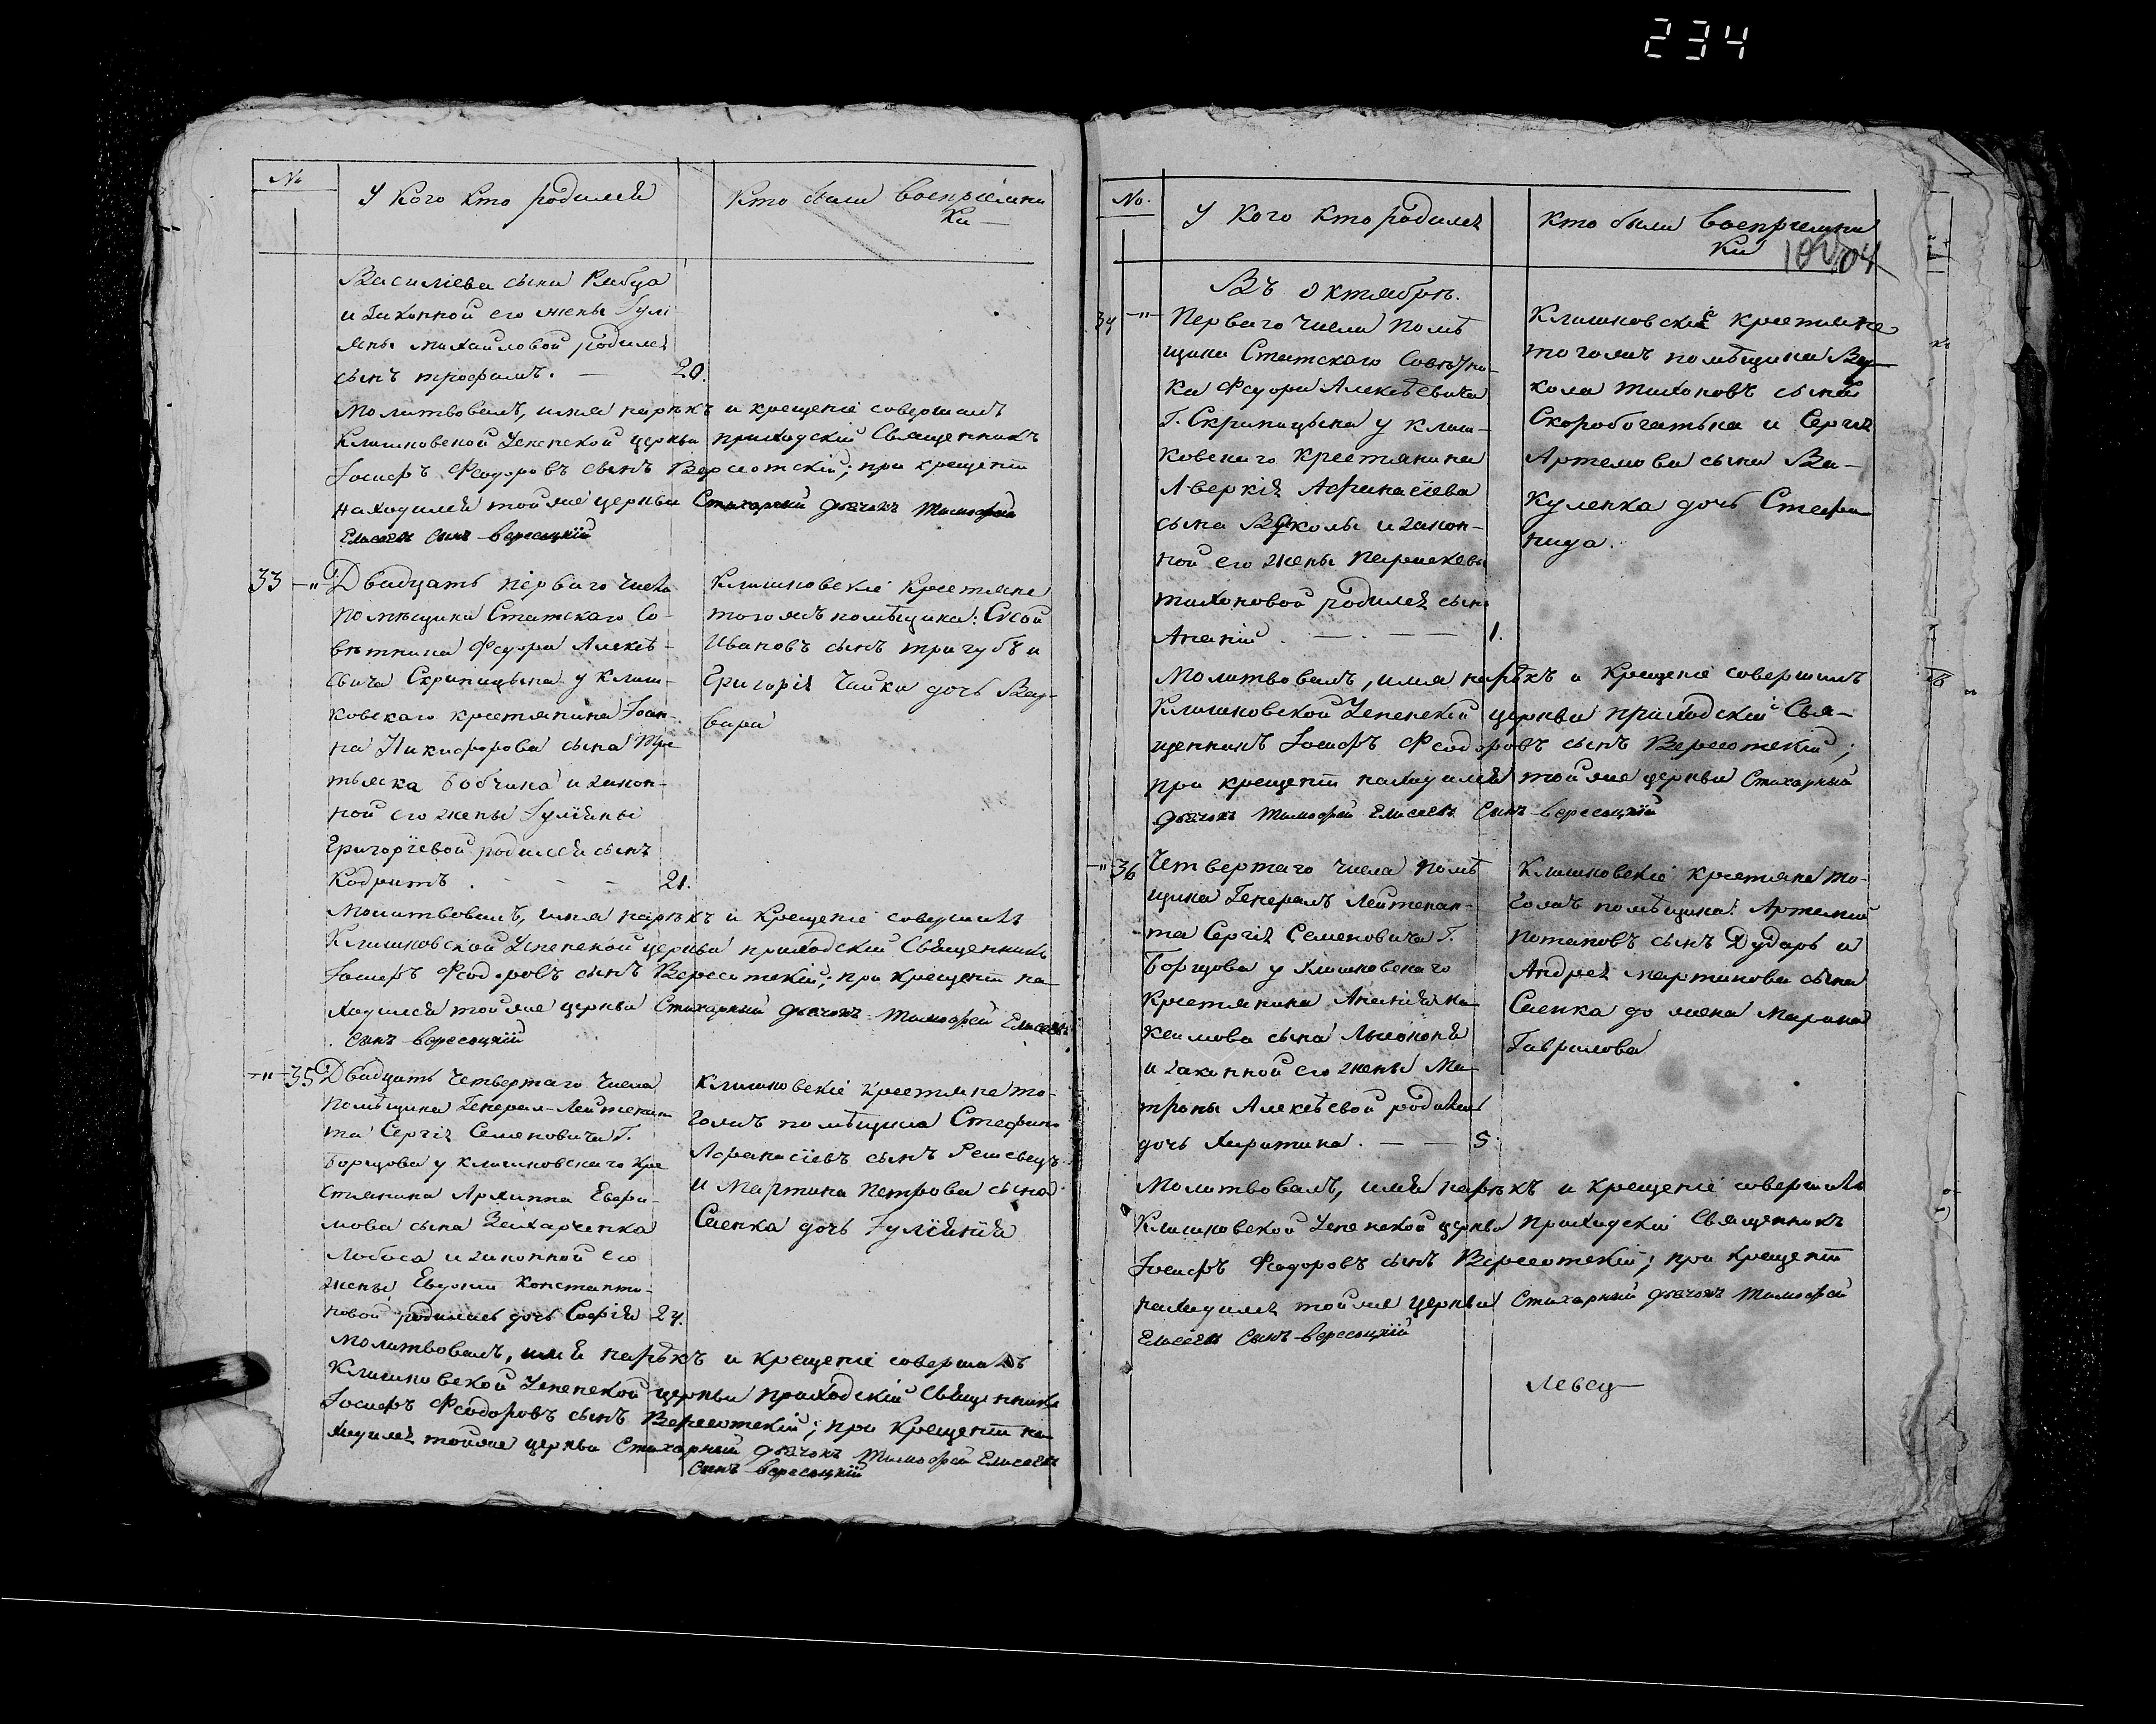 234
№
У Кого Кто родился
Кто были Воспріемни
ки
Василіева сына Рибца
и Законной его жены Іулі
яны Михайловой родился
сынъ Трофимъ. — 20.
Молитвовалъ, имя нарѣкъ и крещеніе совершалъ
Клишковской Успенской церкви приходскій Священникъ
Іосифъ Феодоровъ сынъ Вересотскій; при крещеніи
находился тойже церкви Стихарный дьячокъ Тимофей
Елисеевъ сынъ Вересоцкій
33 Двадцать перваго числа
помѣщика Статскаго Со-
вѣтника Федора Алексѣ-
евича Скрипицына у Клиш-
ковскаго крестянина Іоан-
на Никифорова сына Тре
тьяка Бобчина и закон-
ной его жены Іуліяны
Григоріевой родился сынъ
Кодратъ . - - - 21.
Клишковскіе Крестяне
тогожъ помѣщика: Сисой
Ивановъ сынъ Тригубъ и
Григорія Чайки дочь Вар-
вара
Молитвовалъ, имя нарѣкъ и Крещеніе совершилъ
Клишковской Успенской церкви приходскій Священникъ
Іосифъ Феодоровъ сынъ Вересотскій; при крещеніи на-
ходился тойже церкви Стихарный дьячокъ Тимофей Елисеевъ
сынъ Вересоцкій
35 Двадцать Четвертаго Числа
помѣщика Генерал-Лейтенан
та Сергія Семеновича Г.
Борщова у Клишковскаго Кре
стянина Архиппа Евфи-
мова сына Захарченка
Лобаса и законной его
жены Евдокіи Константи-
новой родилась дочь Софія 24.
Клишковскіе Крестяне то-
гожъ помѣщика Стефанъ
Афанасіевъ сынъ Решевецъ
и Мартина Петрова сына
Саенка дочь Іуліянія
Молитвовалъ, имя нарѣкъ и крещеніе совершалъ
Клишковской Успенской церкви приходскій Священникъ
Іосифъ Феодоровъ сынъ Вересотскій; при Крещеніи на-
ходился тойже церкви Стихарный дьячокъ Тимофей Елисеевъ
сынъ Вересоцкій
№.
У Кого Кто родился
Кто были Воспріемни
ки
104
Въ Октябрѣ.
34 Перваго Числа Помѣ
щика Статскаго Совѣтни-
ка Федора Алексѣевича
Г. Скрипицына у Клиш-
ковскаго Крестянина
Аверкія Афанасіева
сына Вуколы и закон-
ной его жены Параскевы
Тихоновой родился сынъ
Ананій . — . — — 1.
Клишковскіе Крестяне
тогожъ помѣщика Ву-
кола Тихоновъ сынъ
Скоробогатька и Сергія
Артемова сына Ва-
куленка дочь Стефа
нида.
Молитвовалъ, имя нарѣкъ и Крещеніе совершилъ
Клишковской Успенскій церкви приходскій Свя-
щенникъ Іосифъ Феодоровъ сынъ Вересотскій;
при крещеніи находился тойже церкви Стихарный
дьячокъ Тимофей Елисеевъ Сынъ Вересоцкій
36 Четвертаго числа помѣ
щика Генералъ Лейтенан-
та Сергія Семеновича Г.
Борщова у Клишковскаго
Крестянина Ананія Ма-
ксимова сына
и законной его жены Ма-
троны Алексѣевой родилась
дочь Харитина. — — 5.
Клишковскіе Крестяне то-
гожъ помѣщика: Артемій
Потаповъ сынъ Дударь и
Андрея Мартинова сына
Саенка Марина
Гаврилова
Молитвовалъ, имя нарѣкъ и крещеніе совершилъ
Клишковской Успенской церкви приходскій Священникъ
Іосифъ Феодоровъ сынъ Вересотскій; при крещеніи
находился тойже церкви Стихарный дьячокъ Тимофей
Елисеевъ Сынъ Вересоцкій